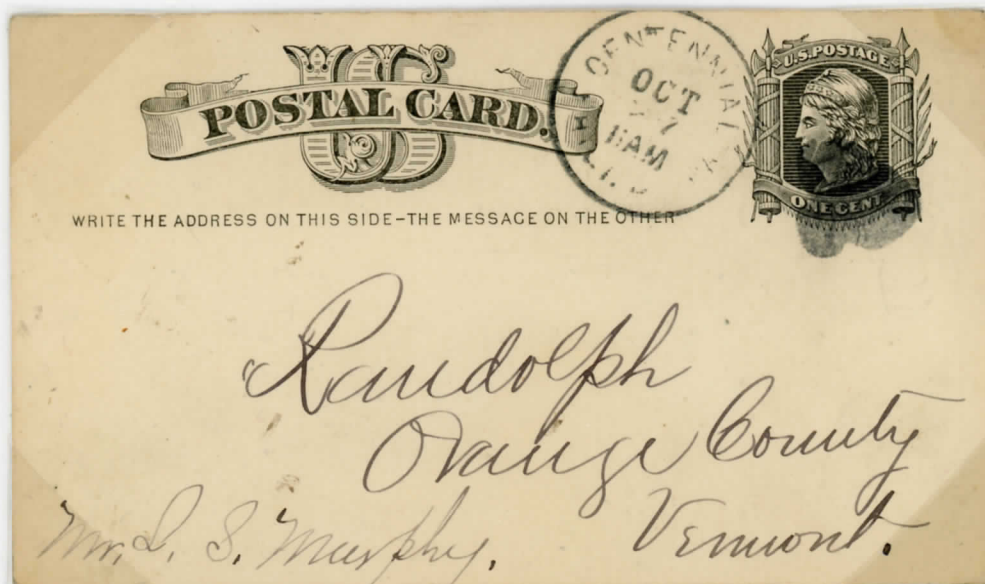 US
POSTAL CARD.
CENTENNIAL
OCT
7
AM
U.S. POSTAGE
ONE CENT.
WRITE THE ADDRESS ON THIS SIDE–THE MESSAGE ON THE OTHER
Randolph
Orange County
Vermont.
Mr. S. Murphy.